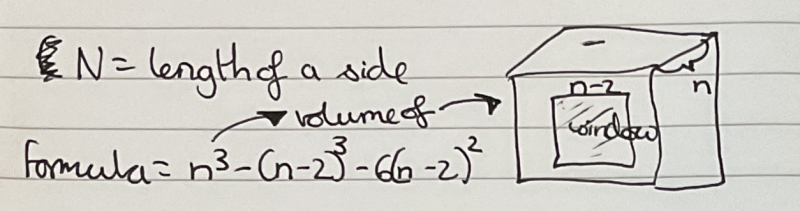 N = length of a side
n-2
n
volume of
window
Formula = n³-(n-2)³-6(n-2)²